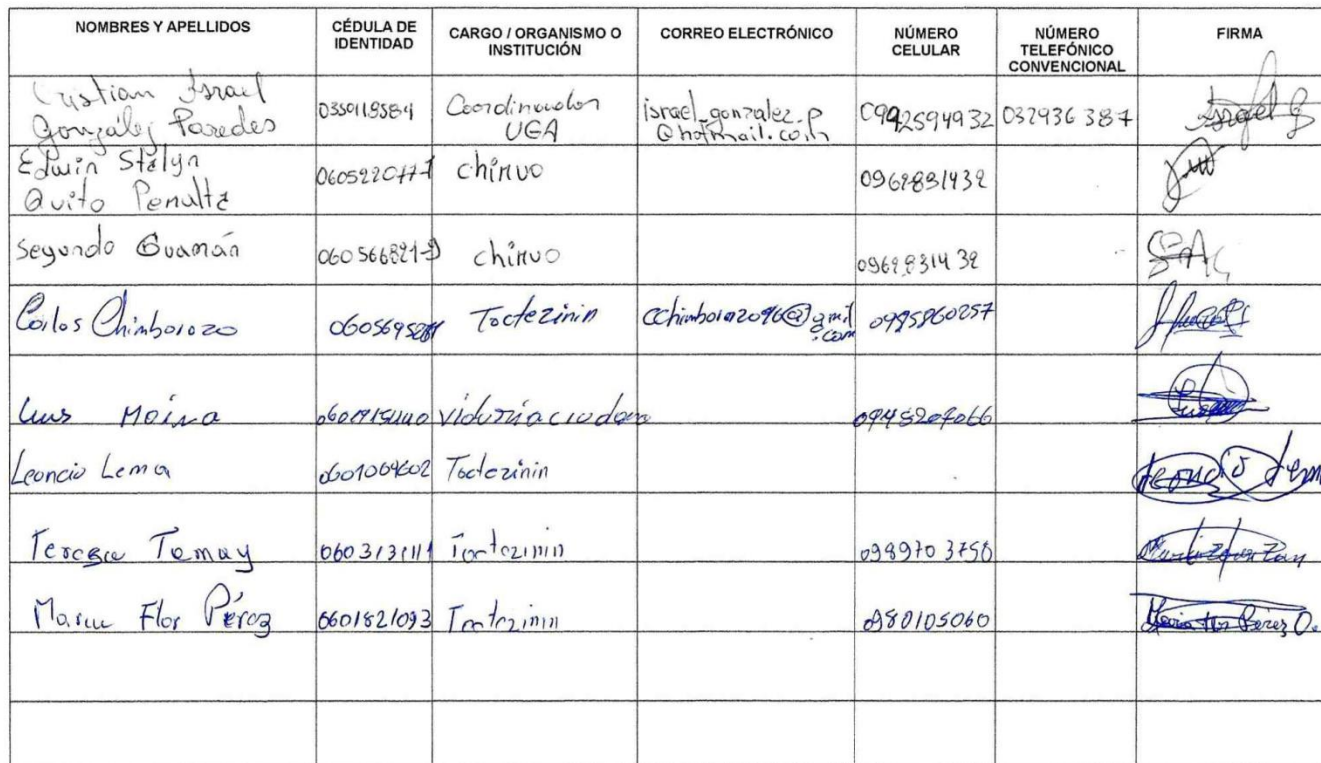 NOMBRES Y APELLIDOS CÉDULA DE IDENTIDAD CARGO / ORGANISMO O INSTITUCIÓN CORREO ELECTRÓNICO NÚMERO CELULAR NÚMERO TELEFÓNICO CONVENCIONAL FIRMA
Cristian Israel González Paredes Coordinador UGA israel_gonzalez_p@hotmail.com 0992594932 032936387 Israel G
Edwin Stalyn Quito chirvo 0969831432
Segundo Guamán 060566821-9 chirvo 0969831432
Carlos Chimborazo Toctezinin cchimborazo96@gmil.com 0985860257
Luis Moina
Leoncio Lema 0601069602 Toctezinin Leoncio Lem
Teresa Tamay 0603131111 Toctezinin 0989703758
Maria Flor Pérez 0601821093 Toctezinin 0980105060 Maria Flor Pérez O.